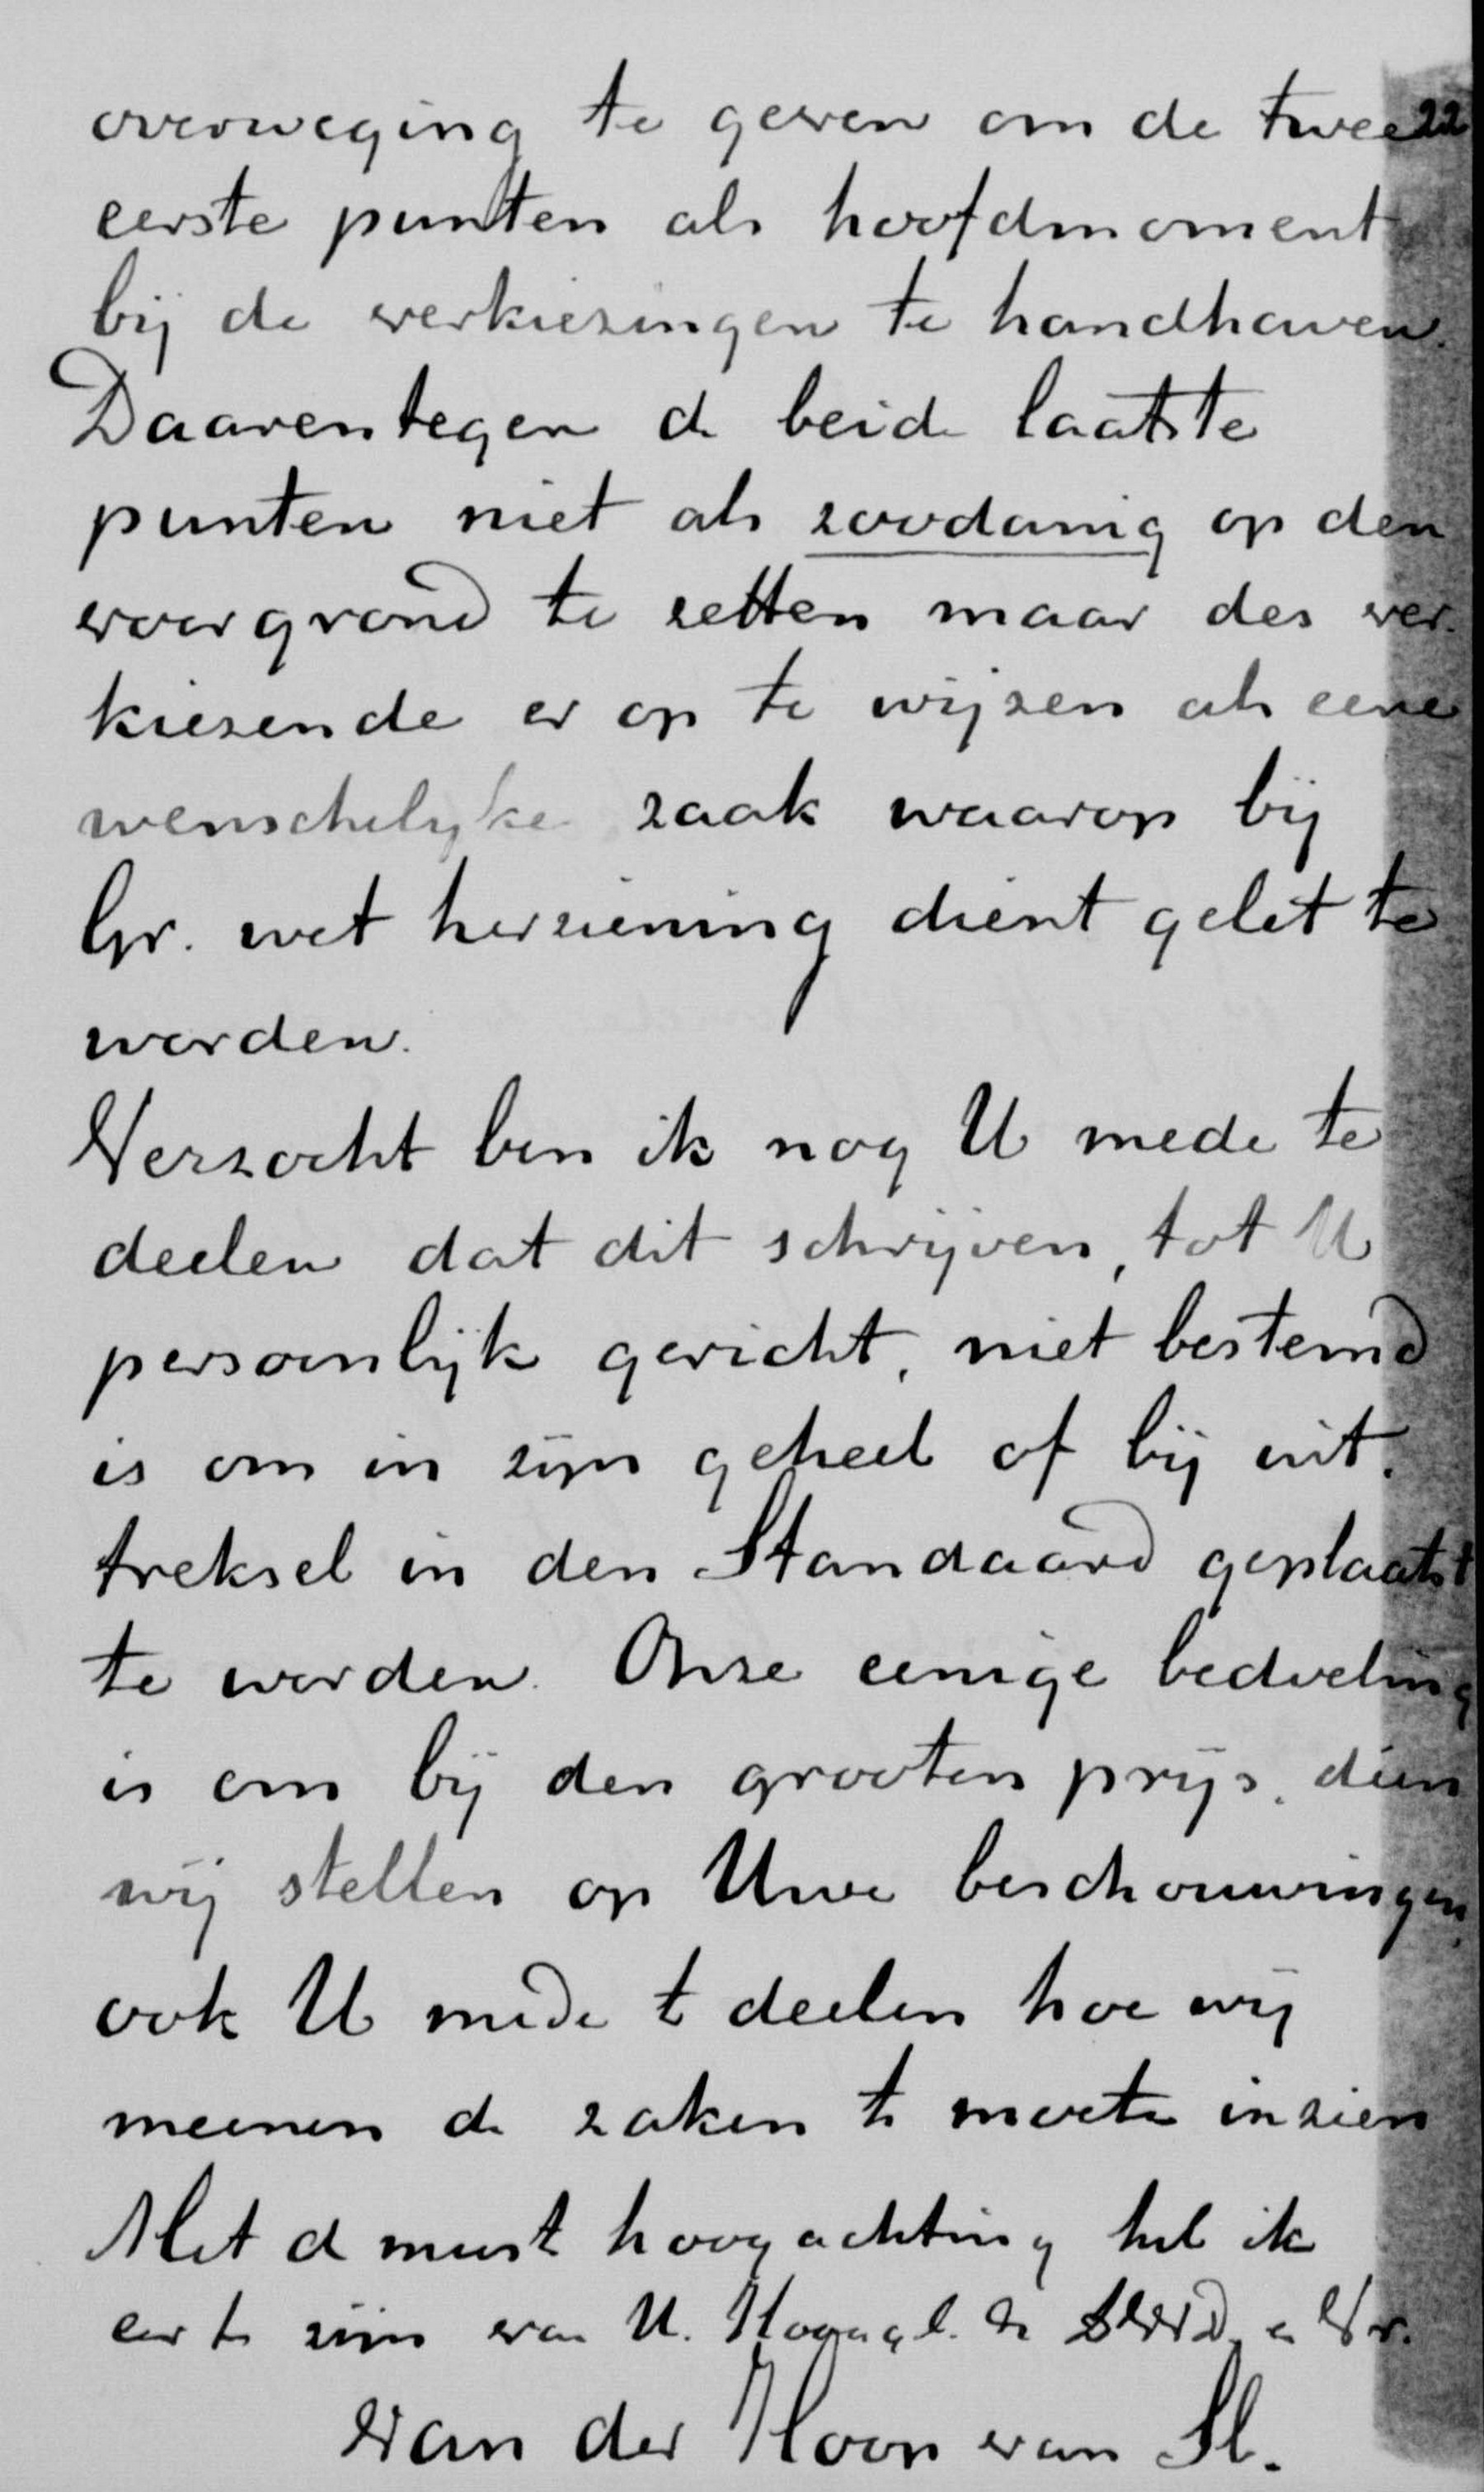 overweging te geven om de twee 22
eerste punten als hoofdmoment
bij de verkiezingen te handhaven.
Daarentegen de beide laatste
punten niet als zoodanig op den
voorgrond te zetten maar des ver-
kiezende er op te wijzen als eene
wenschelijke zaak waarop bij
Gr. wet herziening dient gelet te
worden.
Verzocht ben ik nog U mede te
deelen dat dit schrijven, tot U
persoonlijk gericht, niet bestemd
is om in zijn geheel of bij uit-
treksel in den Standaard geplaatst
te worden. Onze eenige bedoeling
is om bij den grooten prijs, dien
wij stellen op Uwe beschouwingen,
ook U mede te deelen hoe wij
meenen de zaken te moeten inzien
Met de meest hoogachting heb ik
eer te zijn van U. Hoogg. en Vr.
Van der Hoop van Sl.